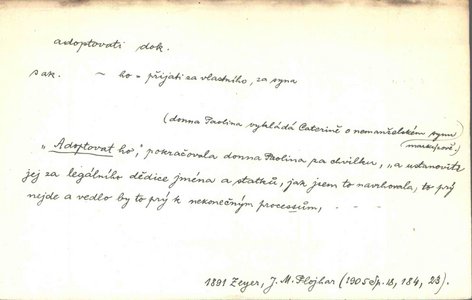 adoptovati dok.
sak. ~ ho = přijati za vlastního, za syna
(donna Paolina vykládá Caterině o nemanželském synu
markýzově.)
„Adoptovat ho," pokračovala donna Paolina za chvilku, „a ustanoviti
jej za legálního dědice jména a statků, jak jsem to navrhovala, to prý
nejde a vedlo by to prý k nekonečným processům, – – – –
1891 Zeyer, J. M. Plojhar (1905 Sp. 13, 184, 23).